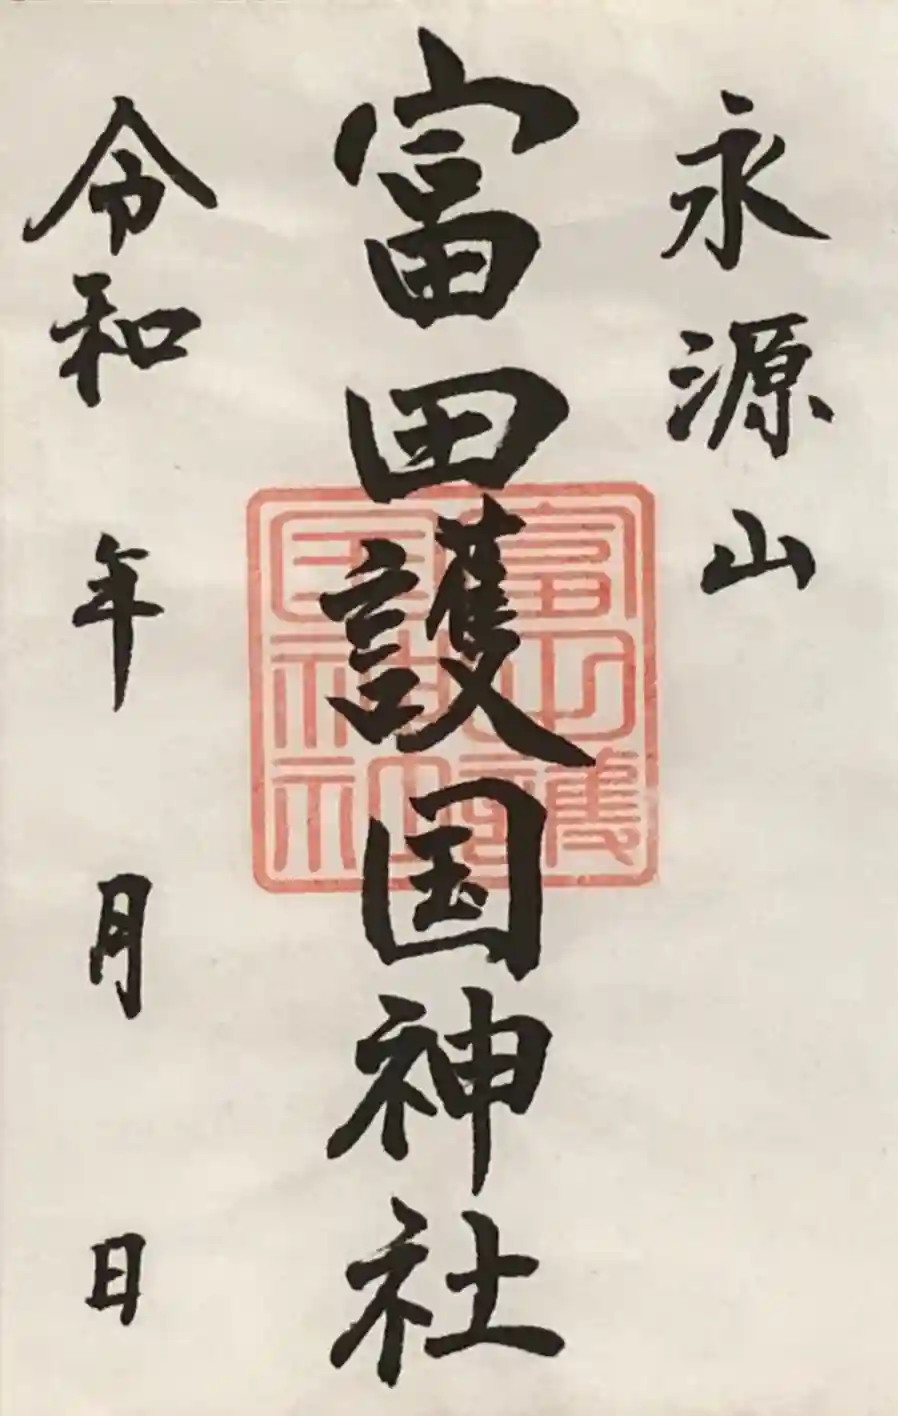 永源山
富田護国神社
令和 年 月 日
富山護
国神社